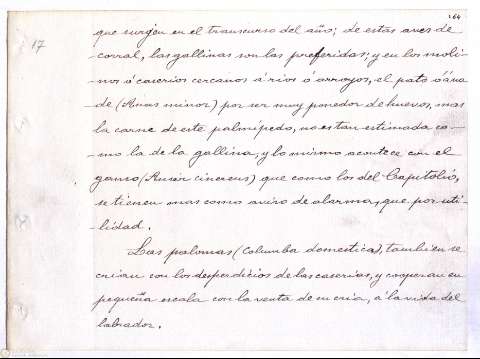 164
17
que surjen en el transcurso del año; de estas aves de
corral, las gallinas son las preferidas; y en los moli-
nos ó caserios cercanos á rios ó arroyos, el pato ó ána-
de (Anas minor) por ser muy ponedor de huevos, mas
la carne de este palmípedo, no es tan estimada co-
mo la de la gallina, y lo mismo acontece con el
ganso (Anser cinereus) que como los del Capitolio,
se tienen mas como aviso de alarma, que por uti-
lidad.
Las palomas (Columba domestica), tambien se
crian con los desperdicios de las caserias, y cooperan en
pequeña escala con la venta de su cria, á la vida del
labrador.